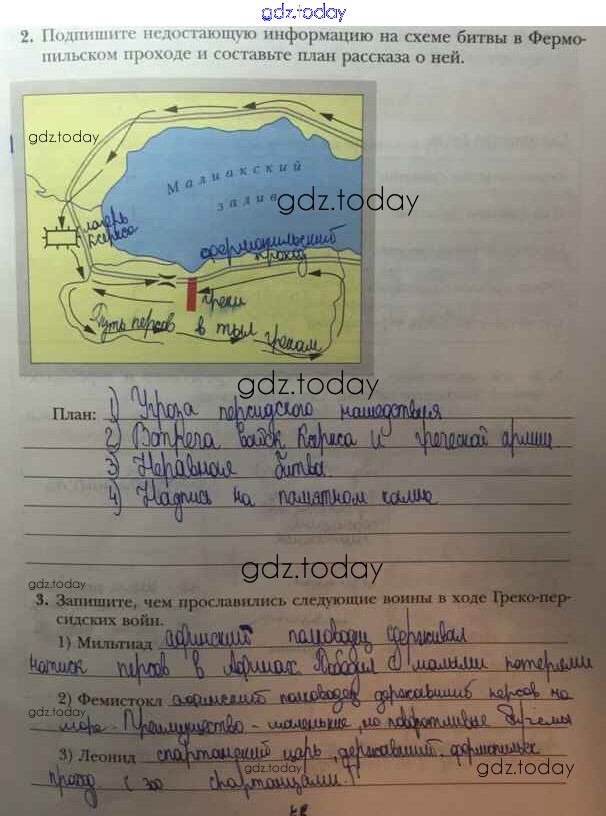 gdz.today
2. Подпишите недостающую информацию на схеме битвы в Фермо-
пильском проходе и составьте план рассказа о ней.
gdz.today
Малиакский
залив
gdz.today
лагерь
Ксеркса
Фермопильский
проход
греки
Путь персов в тыл грекам
gdz.today
План: 1) Угроза персидского нашествия
2) Встреча войск Ксеркса и греческой армии
3) Неравная битва.
4) Надпись на памятном камне
gdz.today
gdz.today
3. Запишите, чем прославились следующие воины в ходе Греко-пер-
сидских войн.
1) Мильтиад афинский полководец сдерживал
натиск персов в Афинах. Победил с малыми потерями
2) Фемистокл афинский полководец державший персов на
gdz.today
море. Преимущество - маленькие, но поворотливые
3) Леонид спартанский царь, державший фермопильск
gdz.today
gdz.today
проход с 300 спартанцами.